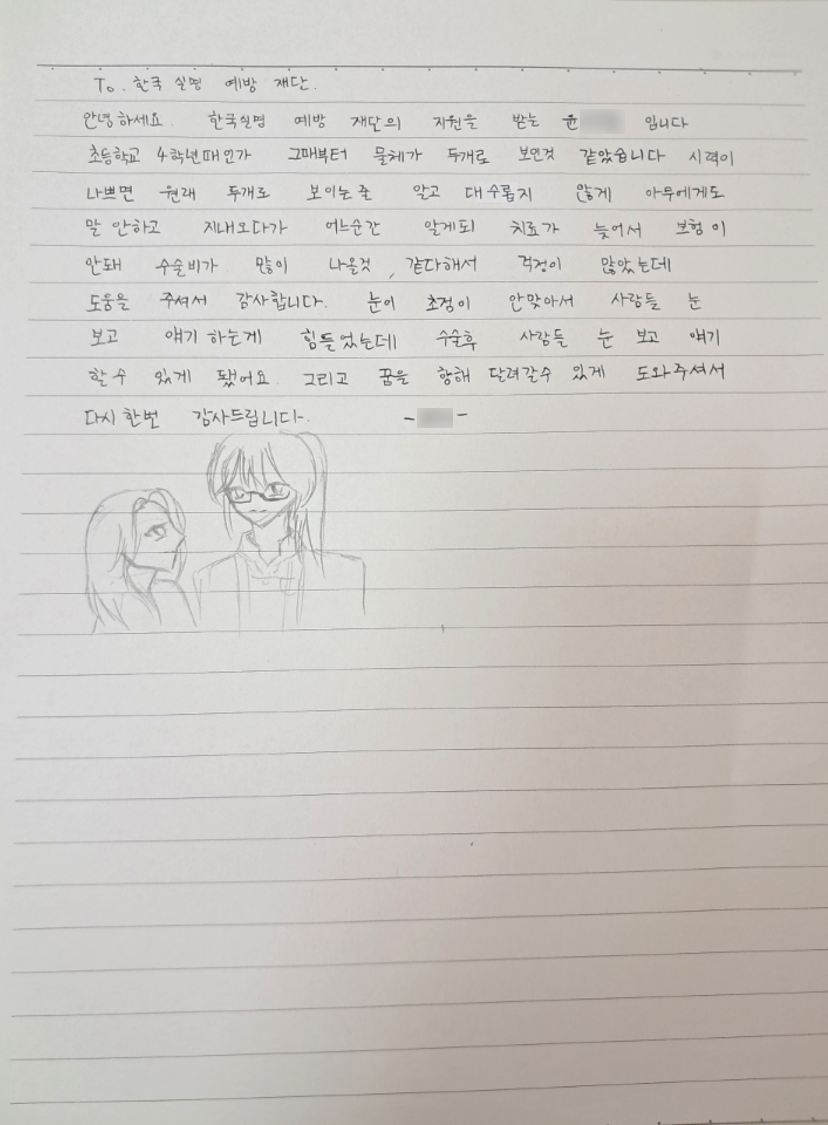 To. 한국 실명 예방 재단.
안녕하세요. 한국실명 예방 재단의 지원을 받는 윤 입니다
초등학교 4학년때인가 그때부터 물체가 두개로 보인것 같았습니다 시력이
나쁘면 원래 두개로 보이는 줄 알고 대수롭지 않게 아무에게도
말 안하고 지내오다가 어느순간 알게되 치료가 늦어서 보험이
안돼 수술비가 많이 나올것, 같다해서 걱정이 많았는데
도움을 주셔서 감사합니다. 눈이 초점이 안맞아서 사람들 눈
보고 얘기 하는게 힘들었는데 수술후 사람들 눈 보고 얘기
할 수 있게 됐어요. 그리고 꿈을 향해 달려갈수 있게 도와주셔서
다시 한번 감사드립니다. - -